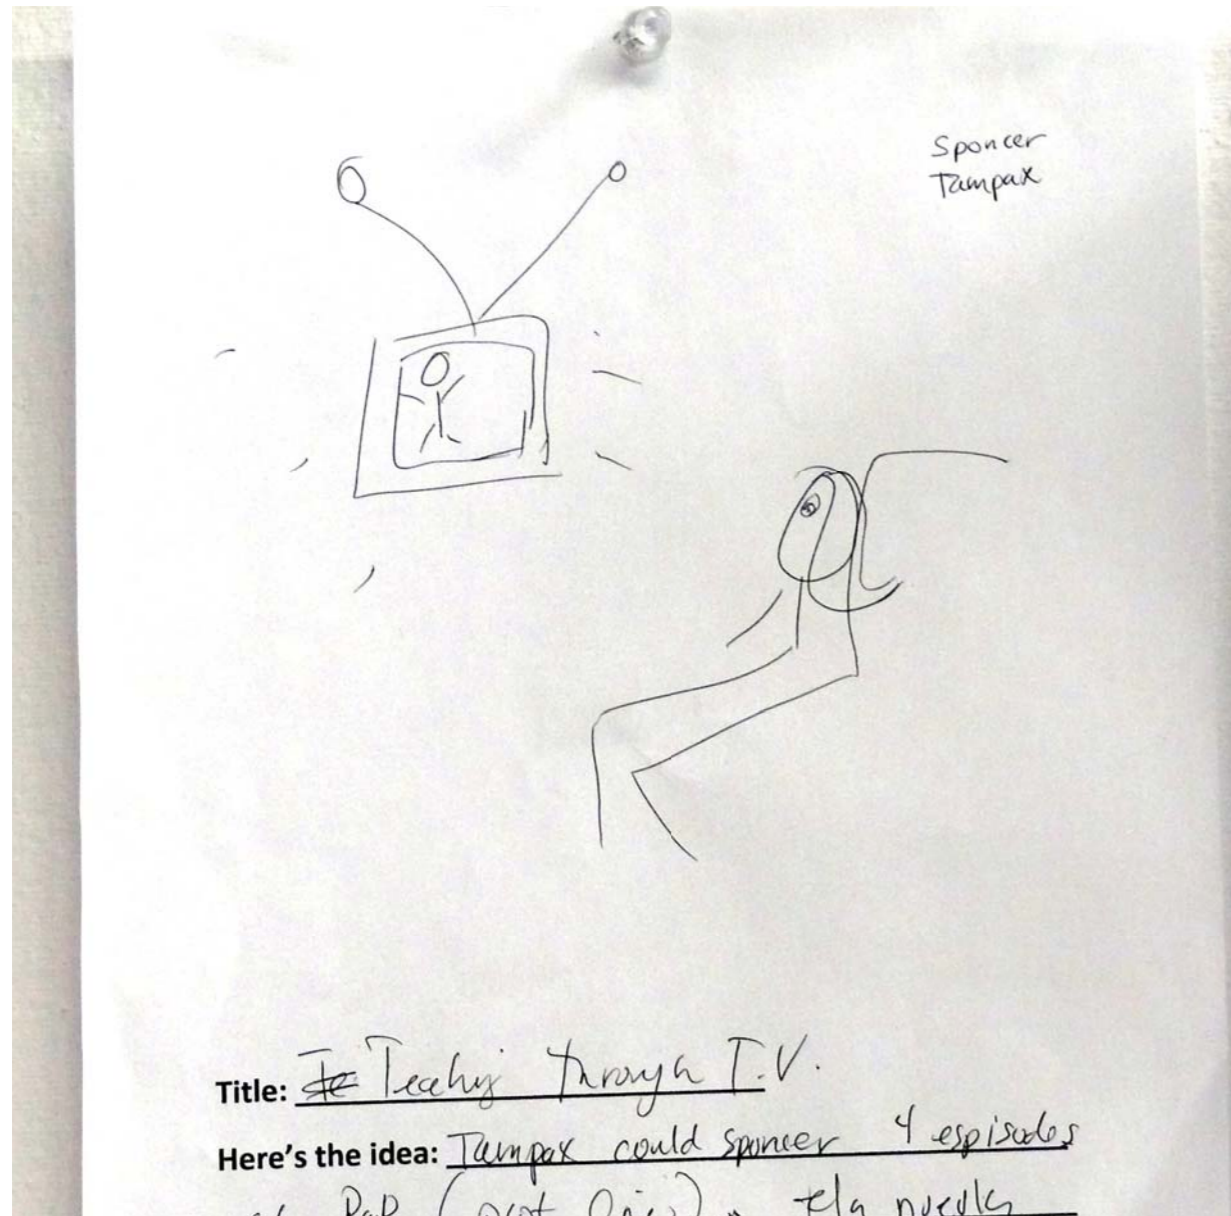 Sponcer
Tampax
Title: Teachig through T.V.
Here's the idea: Tampax could sponcer 4 espisodes